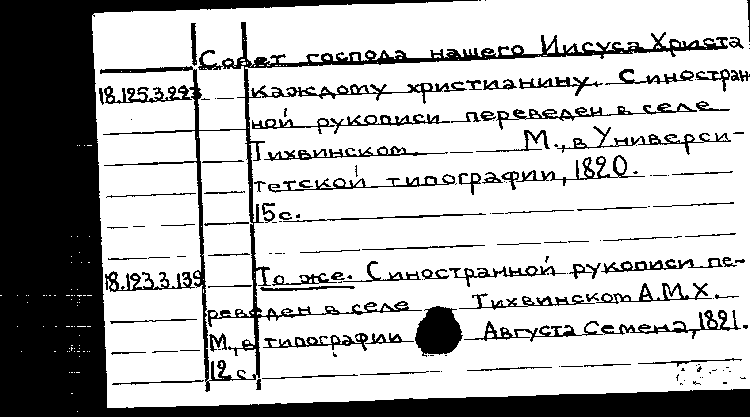 Совет господа нашего Иисуса Христа
18.125.3.293 каждому христианину. С иностран
ной рукописи переведен в селе
Тихвинском. М., в Универси-
тетской типографии, 1820.
15 с.
18.193.3.139 То же. С иностранной рукописи пе-
реведен в селе Тихвинском А.М.Х.
М., в типографии Августа Семена, 1821.
12 с.